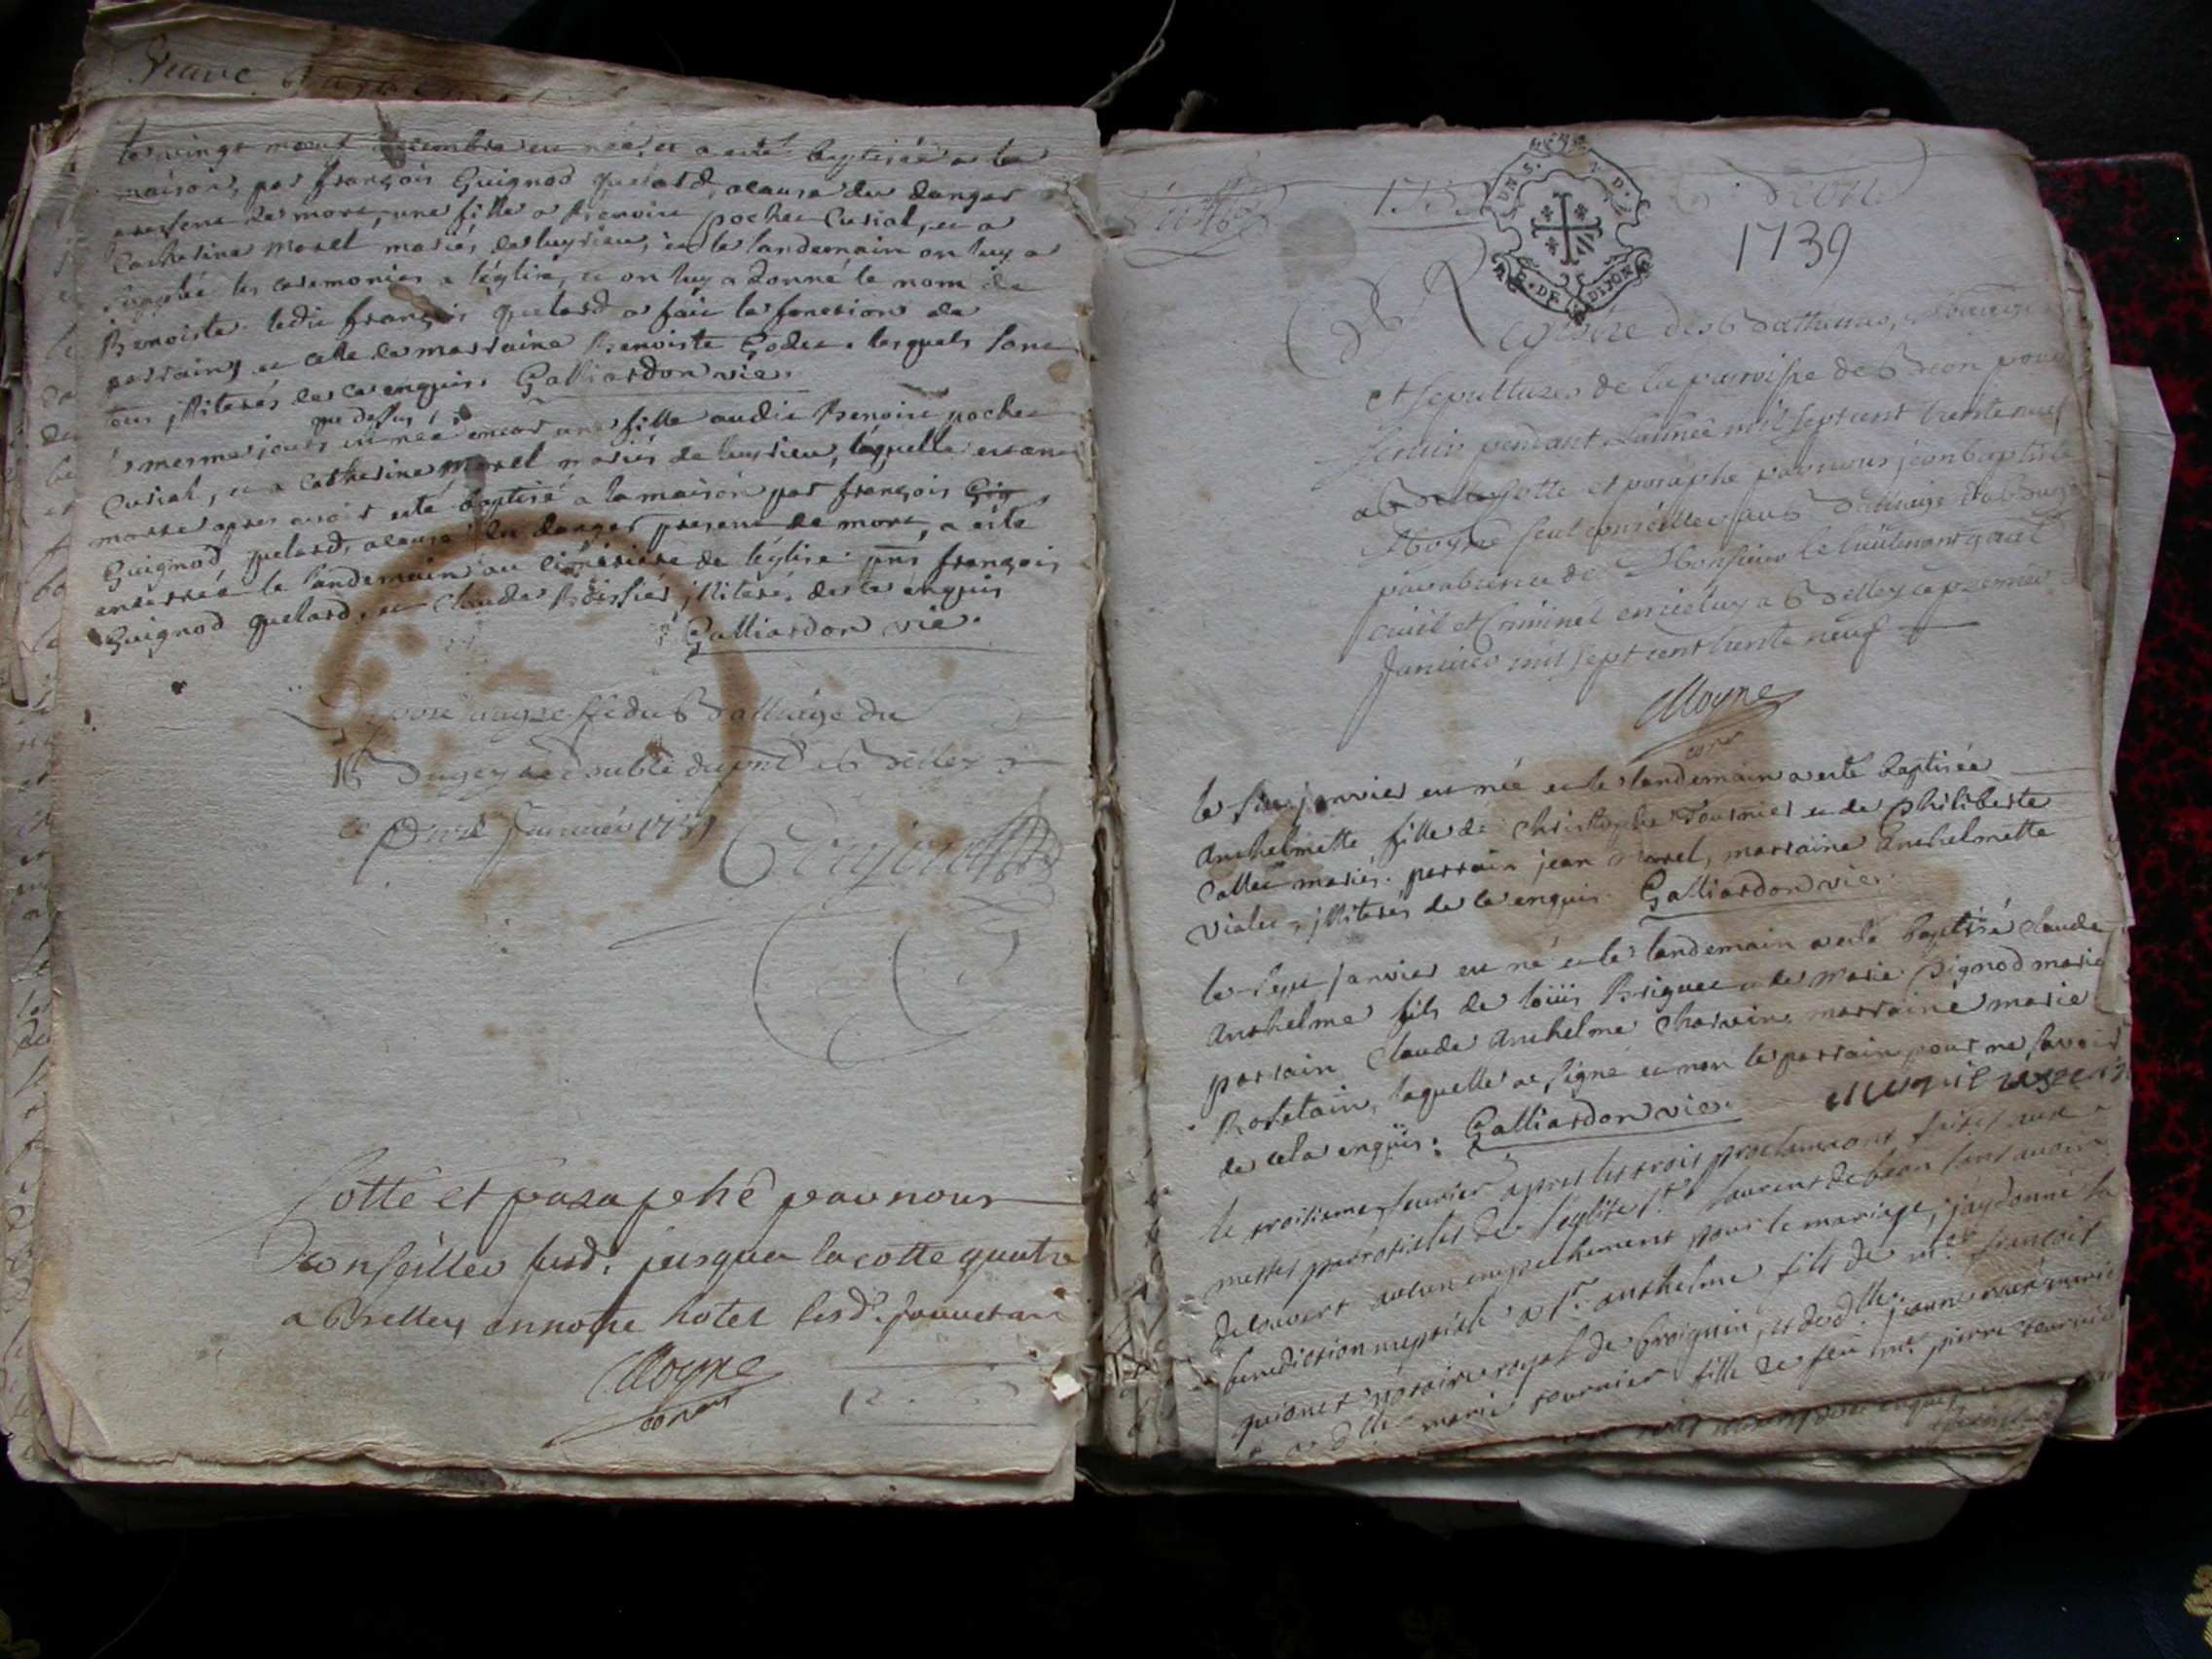 le vingt neuf decembre est née, et a esté baptisée a la
maison, par françois Guignod quelard, a cause du danger
present de mort, une fille a Benoist pochet Cusial, et a
Catherine morel mariés, de luyrieu, et le landemain on luy a
supplée les ceremonies a l'église, et on luy a donné le nom de
Benoiste. ledit françois quelard a fait la fonction de
parrain, et celle de marraine Benoiste Godet. lesquels sont
tous illiterés de ce enquis. Galliardon vic.
que dessus
mesme jour est née encor une fille audit Benoist pochet
Cusial, et a Catherine morel mariés de luyrieu, laquelle estant
morte apres avoir esté baptisé a la maison par françois Gig
Guignod, quelard, a cause du danger present de mort, a esté
enterrée le landemain au cimetiere de l'église. pnts françois
Guignod quelard, et Claude Boissier illiterés de ce enquis
Galliardon vic.
au greffe du Bailliage du
Bugey le double du pnt a Belley
ce Janvier 1739
Cotté et paraphé par nous
Conseiller susd. jusqua la cotte quatre
a Belley en notre hotel lesd. jour et an
Moyne
12
1739
UN S.
G. DE DIJON
Registre des Bathemes, Mariages
et sepultures de la parroisse de Beon pour
servir pendant l'année mil sept cent trente neuf
a Belley cotté et paraphé par nous jean baptiste
Moyne seul conseiller au Bailliage du Bugey
par absence de Monsieur le lieutenant gnal
civil et Criminel en iceluy a Belley ce premier
Janvier mil sept cent trente neuf
Moyne
le six janvier est née et le landemain a esté baptisée
Anthelmette fille de Christophe Tournier et de philiberte
Callet mariés. parrain jean morel, marraine Anthelmette
Violet, illiterés de ce enquis. Galliardon vic.
le sept janvier est né et le landemain a esté baptisé Claude
Anthelme fils de loüis Briquet et de marie pignod marié
parrain Claude Anthelme Charvin, marraine marie
Rostain, laquelle a signé et non le parrain pour ne savoir
de cela enquis. Galliardon vic.
le troisieme fevrier apres les trois proclamations faites aux
messes parrosialles de l'eglise st laurent de beon sans avoir
decouvert aucun empechement pour le mariage, j'ay donné la
benediction nuptiale a sr. anthelme fils de mre francois
notaire royal de brognin, et de dlle. jeanne
a dlle marie tournier fille de feu mre pierre tournier